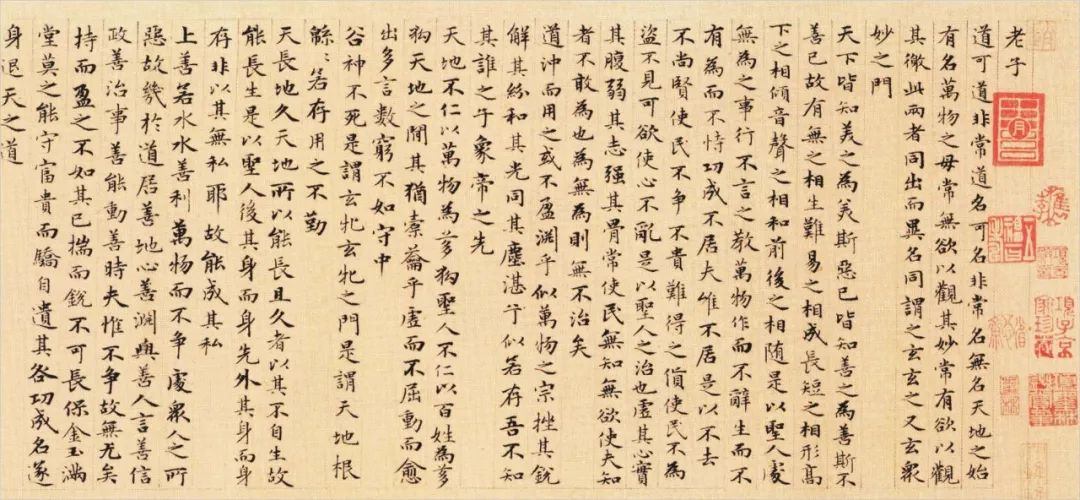 老子
道可道非常道名可名非常名無名天地之始
有名萬物之母常無欲以觀其妙常有欲以觀
其徼此兩者同出而異名同謂之玄玄之又玄衆
妙之門
天下皆知美之為美斯惡已皆知善之為善斯不
善已故有無之相生難易之相成長短之相形高
下之相傾音聲之相和前後之相随是以聖人處
無為之事行不言之教萬物作而不辭生而不
有為而不恃功成不居夫惟不居是以不去
不尚賢使民不爭不貴難得之貨使民不為
盜不見可欲使心不亂是以聖人之治也虛其心實
其腹弱其志强其骨常使民無知無欲使夫知
者不敢為也為無為則無不治矣
道沖而用之或不盈淵乎似萬物之宗挫其銳
解其紛和其光同其塵湛兮似若存吾不知
其誰之子象帝之先
天地不仁以萬物為芻狗聖人不仁以百姓為芻
狗天地之間其猶橐籥乎虛而不屈動而愈
出多言數窮不如守中
谷神不死是謂玄牝玄牝之門是謂天地根
緜〻若存用之不勤
天長地久天地所以能長且久者以其不自生故
能長生是以聖人後其身而身先外其身而身
存非以其無私耶故能成其私
上善若水水善利萬物而不爭處衆人之所
惡故幾於道居善地心善淵與善人言善信
政善治事善能動善時夫惟不爭故無尤矣
持而盈之不如其已揣而銳不可長保金玉滿
堂莫之能守富貴而驕自遺其咎功成名遂
身退天之道
項子京
家珍藏